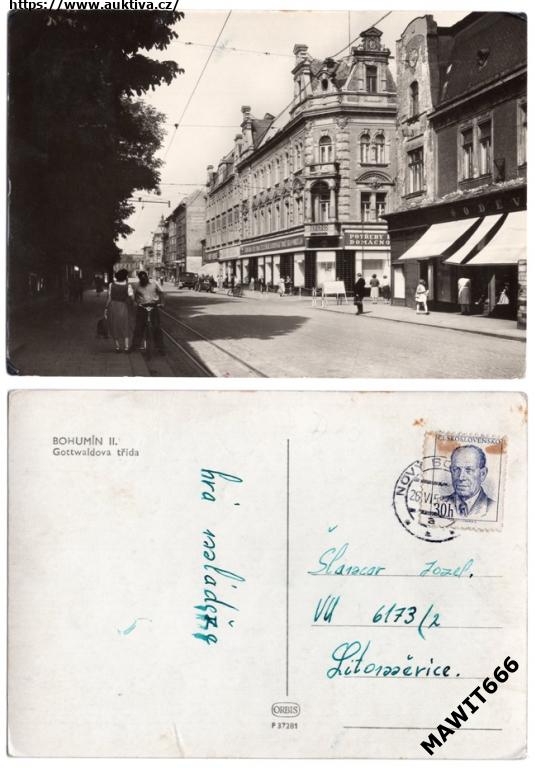 https://www.auktiva.cz/
POTŘEBY
DOMÁCNO
ODĚV
BOHUMÍN II.
Gottwaldova třída
ČESKOSLOVENSKO
30h
NOVÝ BO
26.VI.5
a
hrá
Jozef.
VÚ 6173/2
Litoměřice.
ORBIS
P 37281
MAWIT666